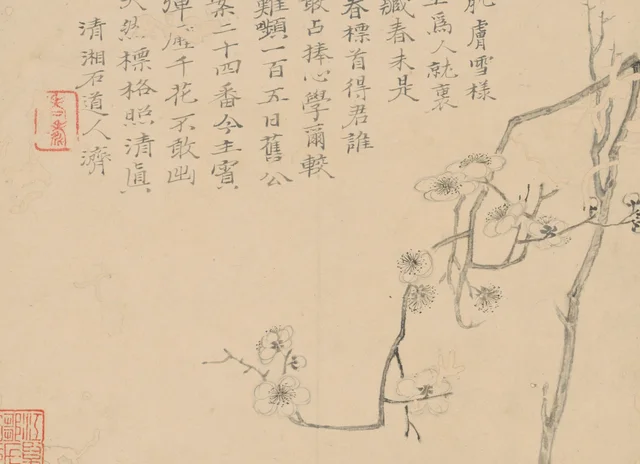 膚雪樣
爲人就裏
藏春未是
春標首得君誰
敢占捧心學爾較
難顰一百五日舊公
案二十四番今主賓
彈壓千花不敢出
天然標格照清眞
清湘石道人濟